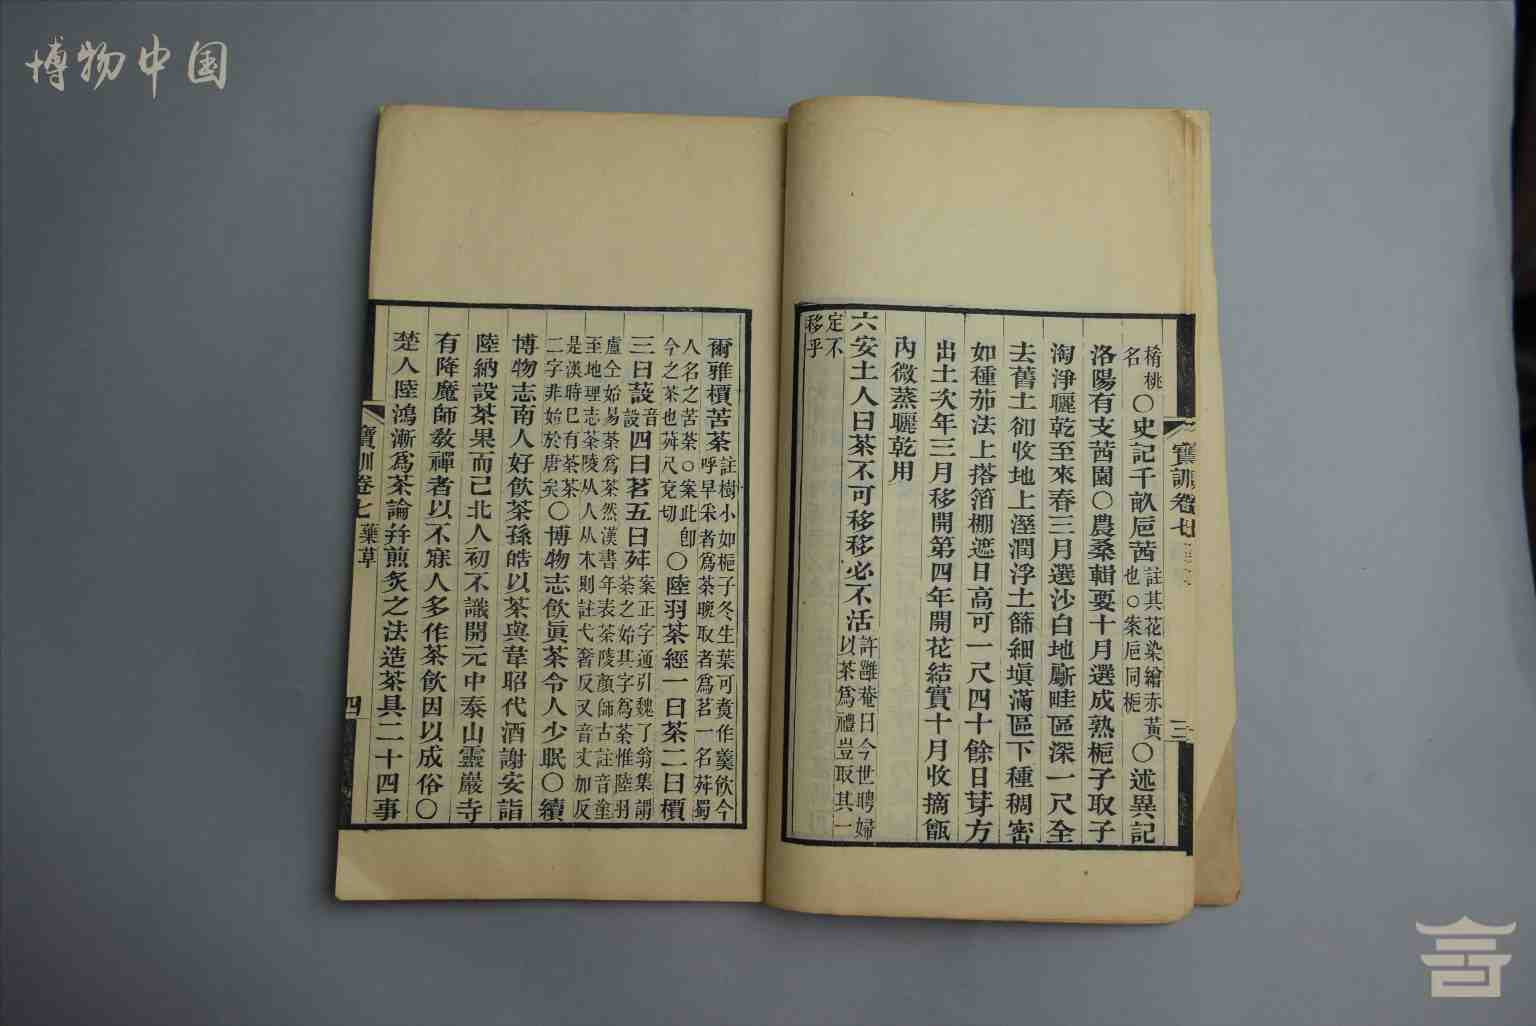 博物中国
楈桃
名
〇史記千畝巵茜
註其花染繒赤黃
也〇案巵同梔
〇述異記
洛陽有支茜園〇農桑輯要十月選成熟梔子取子
淘淨曬乾至來春三月選沙白地斸畦區深一尺全
去舊土卻收地上溼潤浮土篩細塡滿區下種稠密
如種茄法上搭箔棚遮日高可一尺四十餘日芽方
出土次年三月移開第四年開花結實十月收摘甑
內微蒸曬乾用
六安土人曰茶不可移移必不活
許雝菴曰今世聘婦
以茶爲禮豈取其一
定不
移乎
寶訓卷七
三
爾雅檟苦茶
註樹小如梔子冬生葉可煑作羹飲今
呼早采者爲茶晚取者爲茗一名荈蜀
人名之苦茶〇案此卽
今之茶也荈尺兗切
〇陸羽茶經一曰茶二曰檟
三曰蔎
音
設
四曰茗五曰荈
案正字通引魏了翁集謂
茶之始其字爲荼惟陸羽
盧仝始易荼爲茶然漢書年表荼陵顏師古註音塗
至地理志荼陵从人从木則註弋奢反又音丈加反
是漢時已有荼茶
二字非始於唐矣
〇博物志飲眞茶令人少眠〇續
博物志南人好飲茶孫皓以茶與韋昭代酒謝安詣
陸納設茶果而已北人初不識開元中泰山靈巖寺
有降魔師敎禪者以不寐人多作茶飲因以成俗〇
楚人陸鴻漸爲茶論幷煎炙之法造茶具二十四事
寶訓卷七 藥草
四